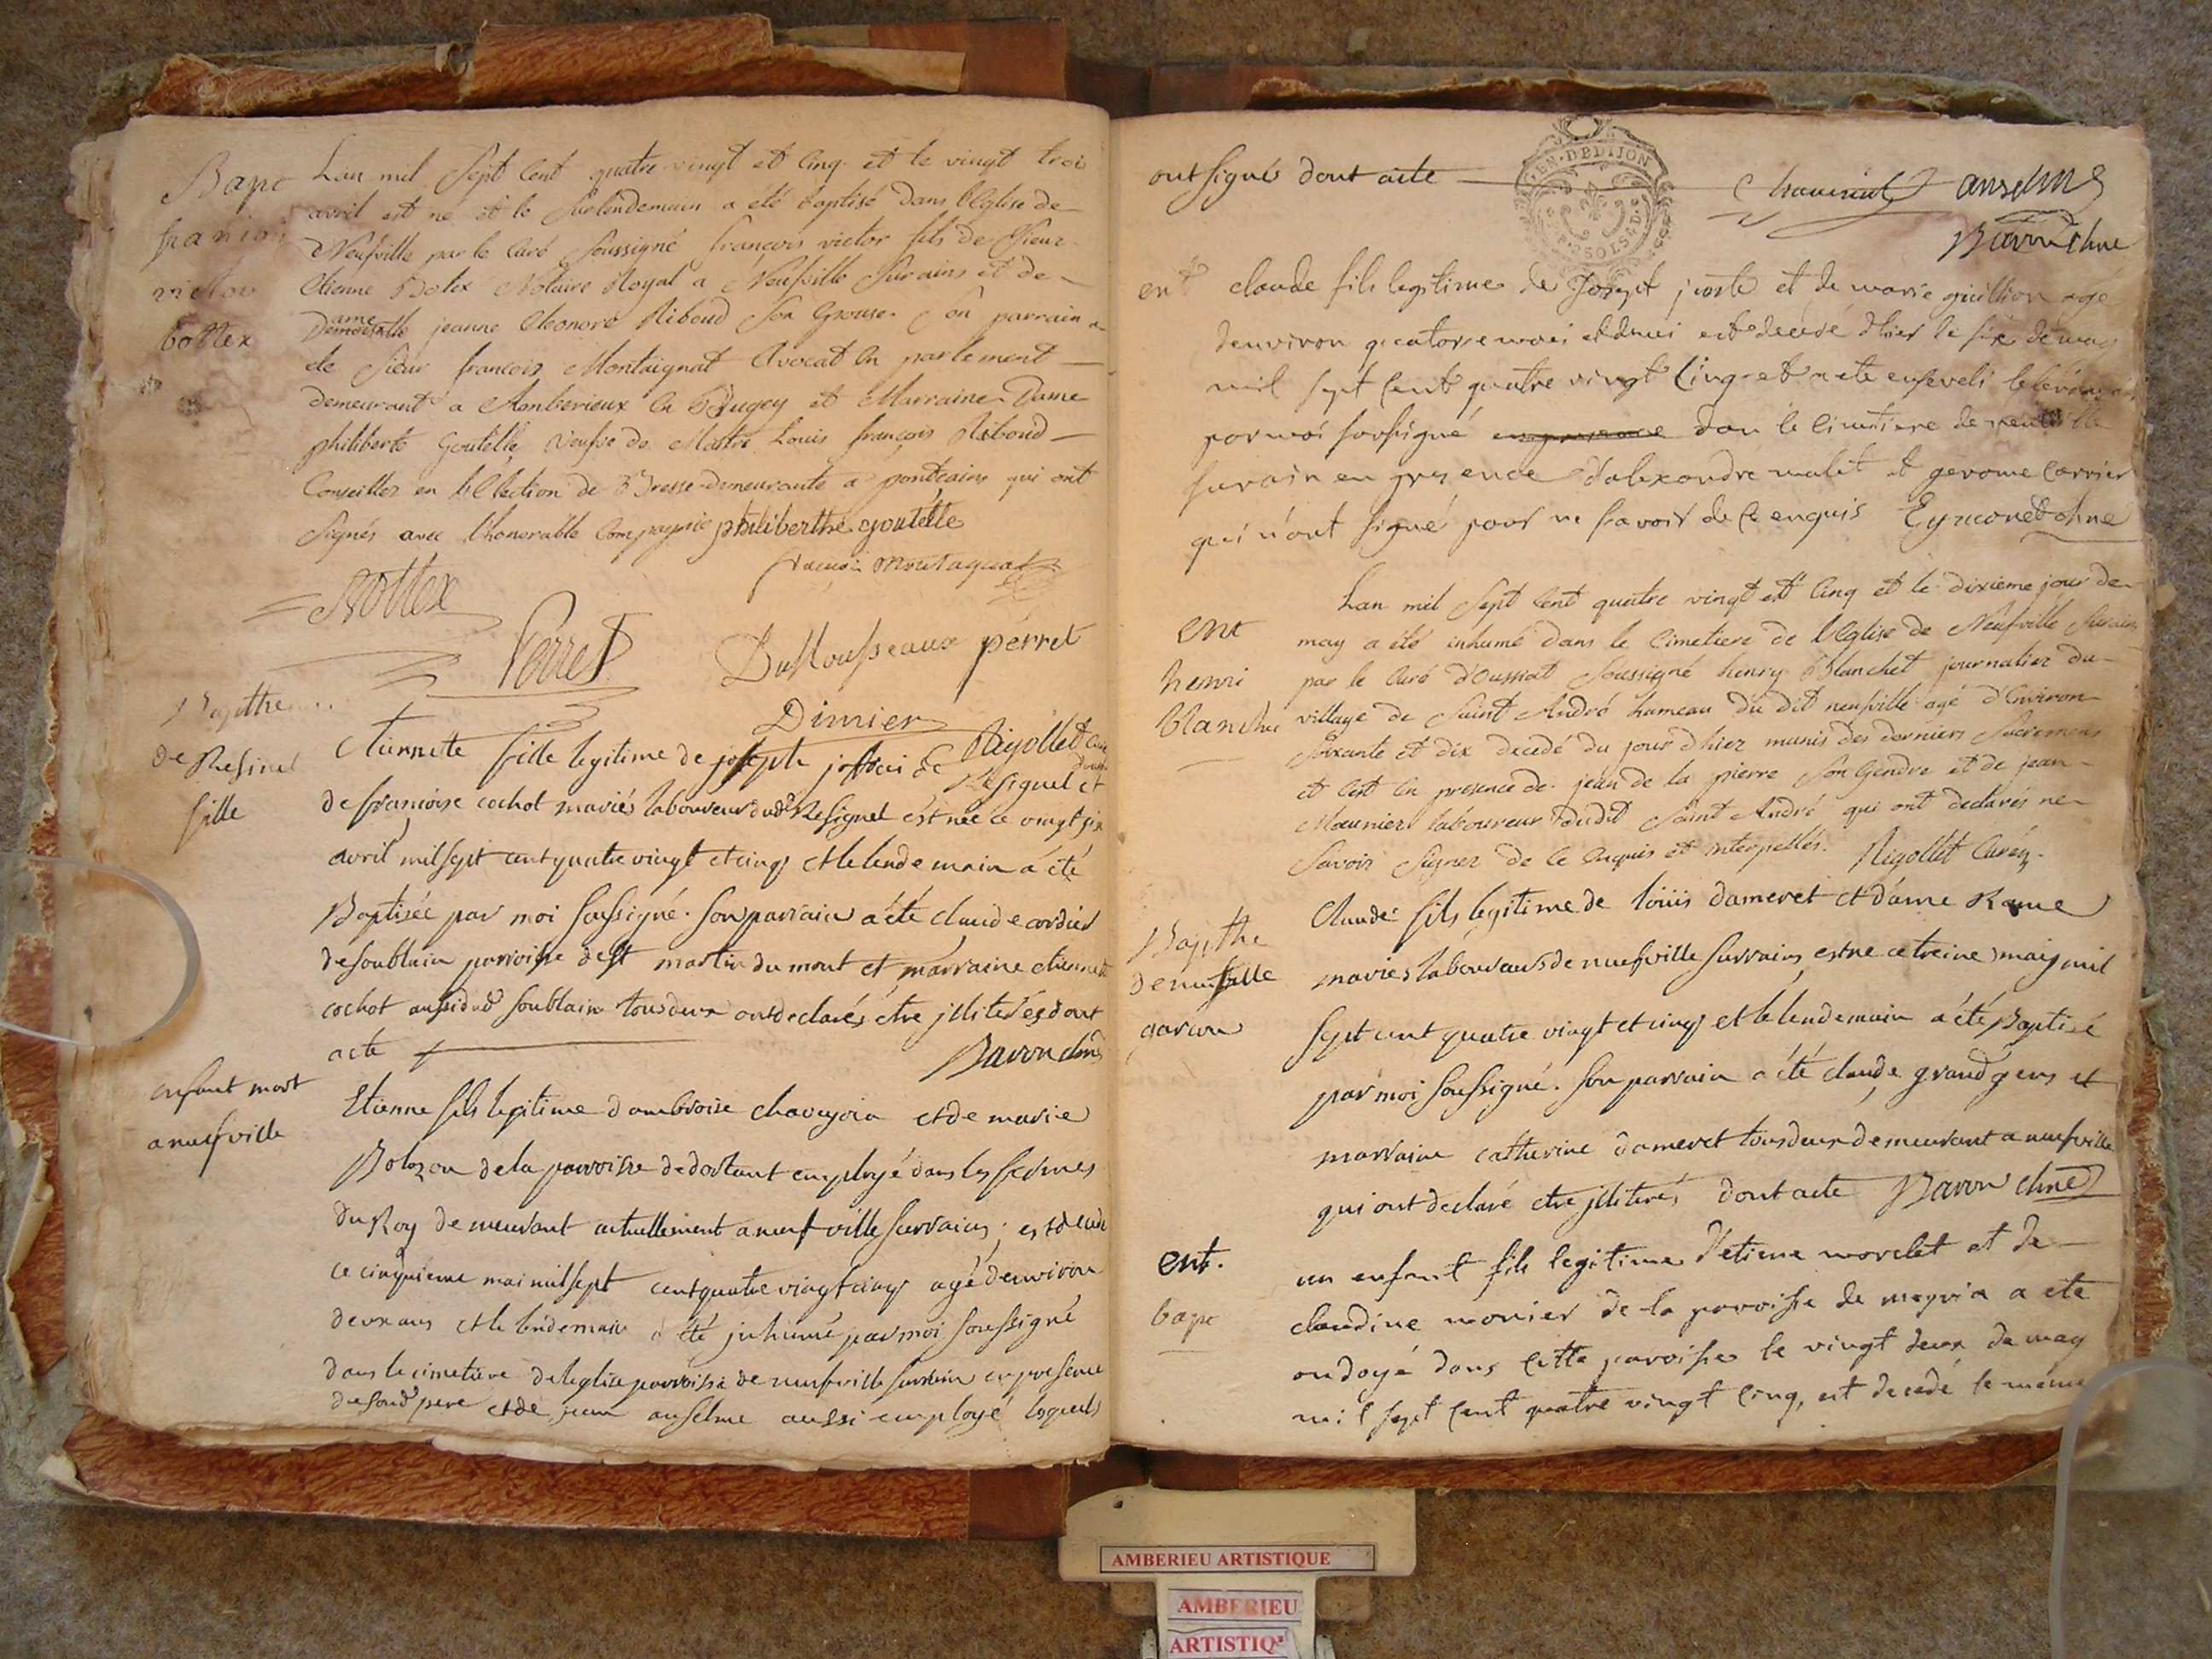 Bapt
francois
victor
bottex
Lan mil Sept Cent quatre vingt et Cinq et le vingt trois
avril est né et le Surlendemain a été baptisé dans l'Eglise de
Neufville par le Curé Soussigné françois victor fils de Sieur
Etienne Botex Notaire Royal a Neufville Surains et de
Dame jeanne Eleonore Riboud Son Epouse. Son parrain a
ete Sieur françois Montaignat Avocat En parlement
demeurant a Amberieux En Bugey et Marraine Dame
philiberte Goutelle veufve de Maitre Louis françois Riboud
Conseiller en l'Election de Bresse demeurante a pontdains qui ont
Signés avec l'honorable Compagnie philiberthe goutelle
françois Montagnat
Bottex
Perret
DuMousseaux perret
Dimier
Rigollet Curé
Bapthe
de Resinel
fille
Etiennete fille legitime de joseph joffrai de Resignel et
de françoise cochot mariés laboureurs dud Resignel est née ce vingt six
avril mil sept cent quatre vingt et cinq et le lendemain a été
Baptisée par moi soussigné. Son parrain a été claude cordier
de soublain parroisse de st martin du mont et marraine etiennete
cochot aussi dud soublain tous deux ont declarés étre jlliterés dont
acte Baron
enfant mort
a neufville
Etienne fils legitime d'ambroise et de marie
Bolozon de la parroisse de dortant employé dans les fermes
du Roy demeurant actuellement a neufville surrains, est decedé
ce cinquieme mai mil sept cent quatre vingt cinq agé denviron
deux ans et le lendemain a été jnhumé par moi soussigné
dans le cimetiere de leglise parroisse de neufville surrain en presence
du pere et de jean anselme aussi employé lesquels
ont signés dont acte
EN DE DIJON
anselme
Baron
ent
claude fils legitime de et de marie guillion agé
denviron quatorse mois et demi est decedé d'hier le six de may
mil sept cent quatre vingt cinq et a ete enseveli
par moi sousigné dan le cimetiere de neuville
surain en presence d'alexandre malet et gerome carrier
qui n'ont signé pour ne savoir de ce enquis
ent
henri
blanchet
Lan mil Sept Cent quatre vingt et Cinq et le dixieme jour de
may a été inhumé dans le Cimetiere de l'Eglise de Neufville Surains
par le Curé d'Oussiat Soussigné henry Blanchet journalier du
village de Saint André hameau du dit neufville agé d'Environ
Soixante et dix decedé du jour d'hier munis des derniers Sacremens
et C'est En presence de jean de la pierre Son Gendre et de jean
Meunier laboureur dudit Saint André qui ont declarés ne
Savoir Signer de Ce Enquis et interpellés. Rigollet Curé.
Bapthe
de neufville
garcon
Claude fils legitime de loüis dameret et d'ame Rame
mariés laboureurs de neufville surrains est ne ce treize mai mil
sept cent quatre vingt et cinq et le lendemain a été Baptisé
par moi soussigné. Son parrain a été claude grandgens et
marraine catherine dameret tous deux demeurant a neufville
qui ont declaré etre jlliterés dont acte Baron
ent.
bapt
un enfant fils legitime d'etiene morelet et de
claudine monier de la paroisse de meyria a ete
ondoyé dans cette paroisse le vingt deux de may
mil sept cent quatre vingt cinq, est decedé le meme
AMBERIEU ARTISTIQUE
AMBERIEU
ARTISTIQ